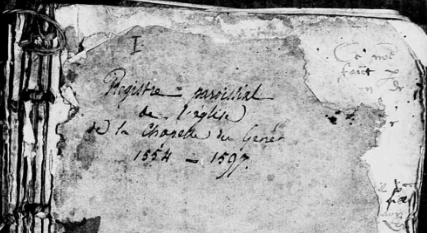 I
Registre paroissial
de l'église
de la Chapelle du Genêt
1554 - 1597.
Ce